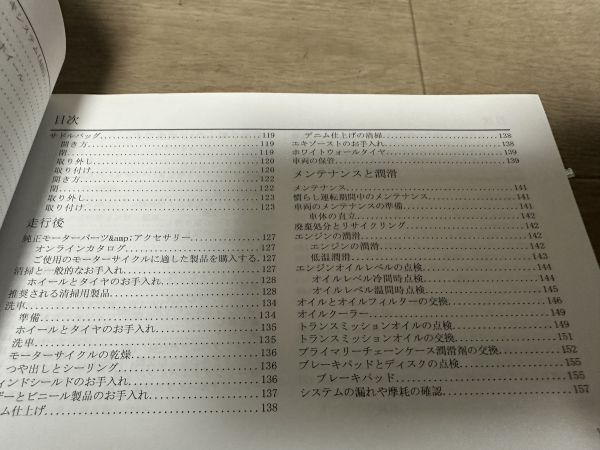 目次
サドルバッグ 119
開き方 119
閉 119
取り外し 120
取り付け 120
開き方 122
閉 122
取り外し 123
取り付け 123
走行後
純正モーターパーツ&amp;アクセサリー 127
オンラインカタログ 127
ご使用のモーターサイクルに適した製品を購入する 127
清掃と一般的なお手入れ 127
ホイールとタイヤのお手入れ 128
推奨される清掃用製品 128
洗車 134
準備 134
ホイールとタイヤのお手入れ 135
洗車 135
モーターサイクルの乾燥 136
つや出しとシーリング 136
ィンドシールドのお手入れ 136
ザーとビニール製品のお手入れ 137
ム仕上げ 138
デニム仕上げの清掃 138
エキゾーストのお手入れ 138
ホワイトウォールタイヤ 139
車両の保管 139
メンテナンスと潤滑
メンテナンス 141
慣らし運転期間中のメンテナンス 141
車両のメンテナンスの準備 141
車体の直立 142
廃棄処分とリサイクリング 142
エンジンの潤滑 142
エンジンの潤滑 142
低温潤滑 143
エンジンオイルレベルの点検 144
オイルレベル冷間時点検 144
オイルレベル温間時点検 145
オイルとオイルフィルターの交換 146
オイルクーラー 149
トランスミッションオイルの点検 149
トランスミッションオイルの交換 151
プライマリーチェーンケース潤滑剤の交換 152
ブレーキパッドとディスクの点検 155
ブレーキパッド 155
システムの漏れや摩耗の確認 157